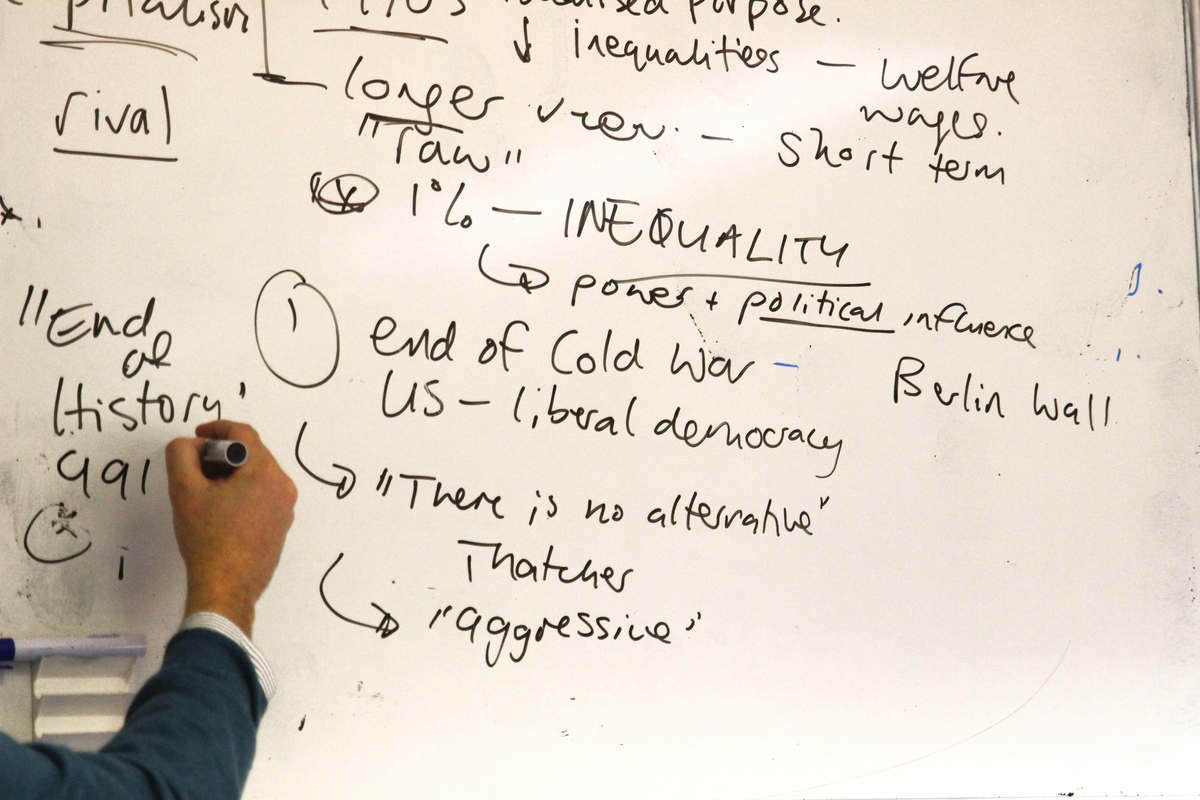 purpose.
inequalities – welfare
wages.
rival
longer view. – short term
"raw"
1% – INEQUALITY
power + political influence
"End
of
History"
991
1
end of Cold War – Berlin Wall
US – liberal democracy
"There is no alternative"
Thatcher
"aggressive"